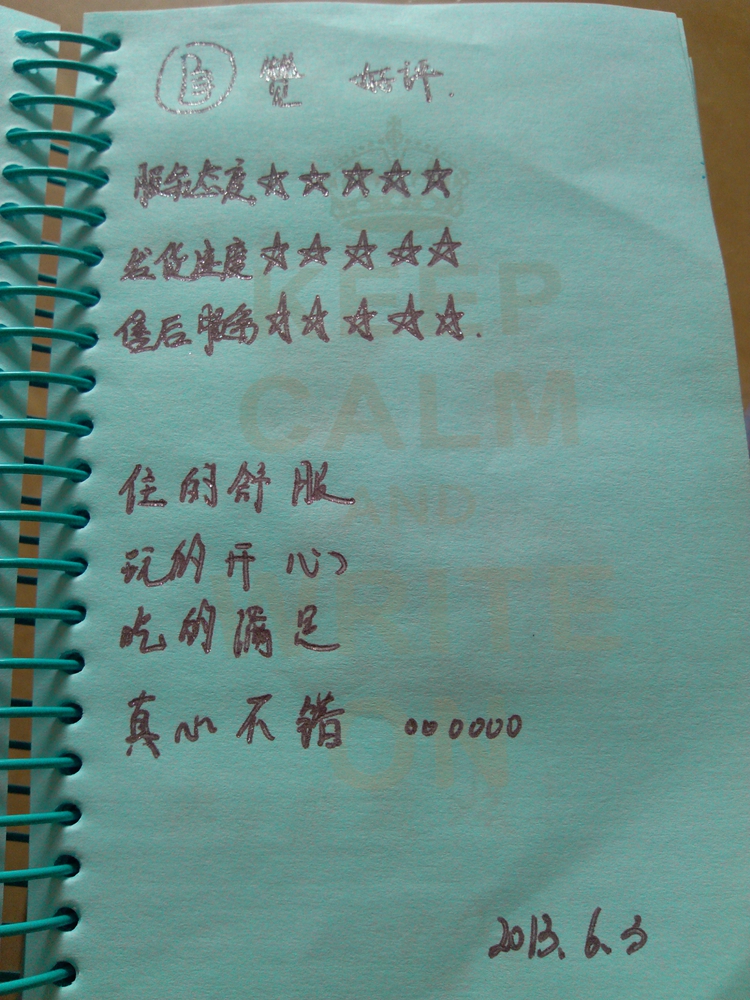 好评.
服务态度☆☆☆☆☆
发货速度☆☆☆☆☆
售后服务☆☆☆☆☆.
KEEP
CALM
AND
WRITE
ON
住的舒服
玩的开心
吃的满足
真心不错 。。。。。。
2013.6.3